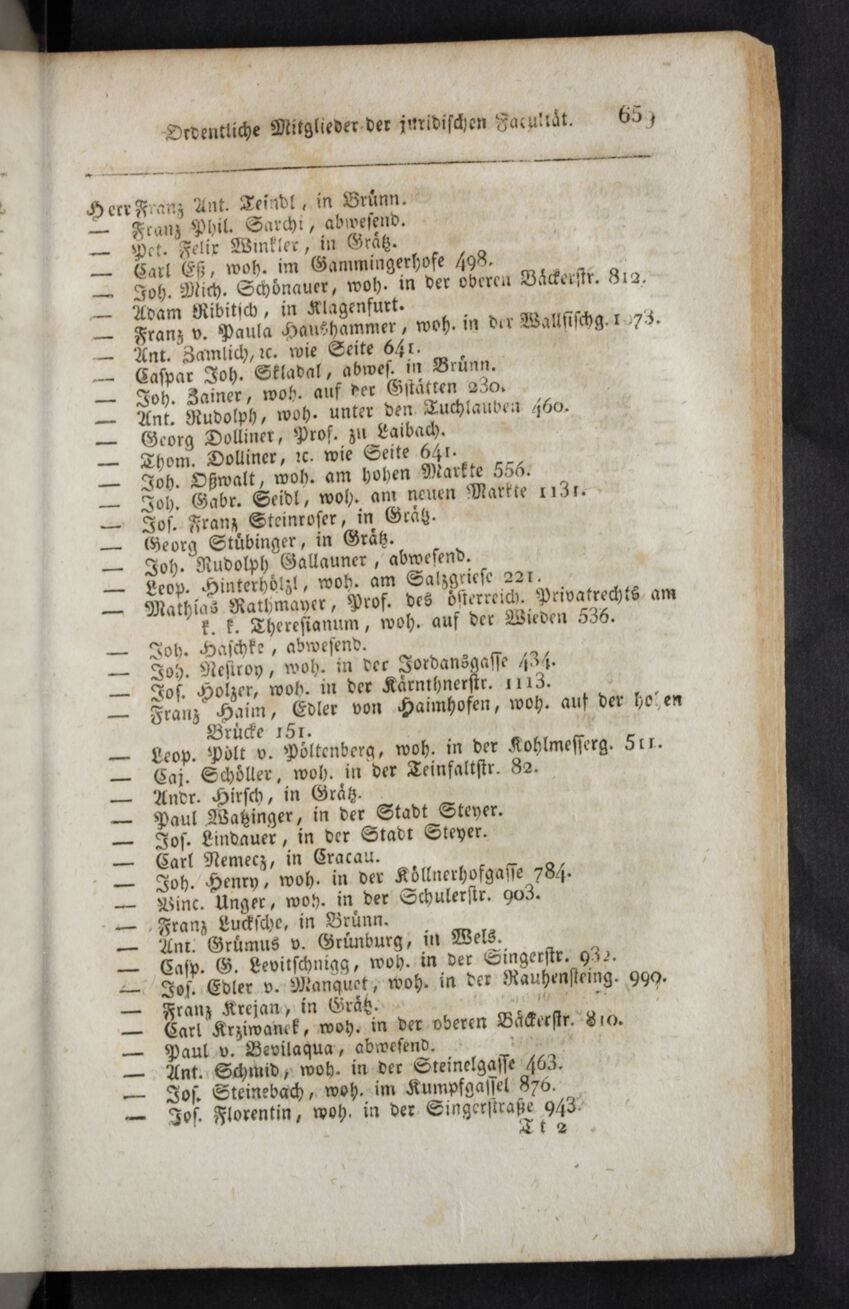 Ordentliche Mitglieder der juridischen Facultät. 659
Herr Franz Ant. Teindl, in Brünn.
— Franz Phil. Sarchi, abwesend.
— Pet. Felix Winkler, in Grätz.
— Carl Eß, woh. im Gammingerhofe 498.
— Joh. Mich. Schönauer, woh. in der oberen Bäckerstr. 812.
— Adam Ribitsch, in Klagenfurt.
— Franz v. Paula Haushammer, woh. in der Wallfischg. 1073.
— Ant. Zamlich, ꝛc. wie Seite 641.
— Caspar Joh. Skladal, abwes. in Brünn.
— Joh. Zainer, woh. auf der Gstätten 230.
— Ant. Rudolph, woh. unter den Tuchlauben 460.
— Georg Dolliner, Prof. zu Laibach.
— Thom. Dolliner, ꝛc. wie Seite 641.
— Joh. Oßwalt, woh. am hohen Markte 556.
— Joh. Gabr. Seidl, woh. am neuen Markte 1131.
— Jos. Franz Steinroser, in Grätz.
— Georg Stübinger, in Grätz.
— Joh. Rudolph Gallauner, abwesend.
— Leop. Hinterhölzl, woh. am Salzgriese 221.
— Mathias Rathmayer, Prof. des österreich. Privatrechts am
k. k. Theresianum, woh. auf der Wieden 536.
— Joh. Haschke, abwesend.
— Joh. Nestroy, woh. in der Jordansgasse 434.
— Jos. Holzer, woh. in der Kärnthnerstr. 1113.
— Franz Haim, Edler von Haimhofen, woh. auf der hohen
Brücke 151.
— Leop. Pölt v. Pöltenberg, woh. in der Kohlmesserg. 511.
— Caj. Schöller, woh. in der Teinfaltstr. 82.
— Andr. Hirsch, in Grätz.
— Paul Watzinger, in der Stadt Steyer.
— Jos. Lindauer, in der Stadt Steyer.
— Carl Nemecz, in Cracau.
— Joh. Henry, woh. in der Köllnerhofgasse 784.
— Vinc. Unger, woh. in der Schulerstr. 903.
— Franz Lucksche, in Brünn.
— Ant. Grümus v. Grünburg, in Wels.
— Casp. G. Levitschnigg, woh. in der Singerstr. 932.
— Jos. Edler v. Manquet, woh. in der Rauhensteing. 990.
— Franz Krejan, in Grätz.
— Carl Krziwanek, woh. in der oberen Bäckerstr. 810.
— Paul v. Bevilaqua, abwesend.
— Ant. Schmid, woh. in der Steinelgasse 463.
— Jos. Steinebach, woh. im Kumpfgassel 876.
— Jos. Florentin, woh. in der Singerstraße 943.
Tt 2